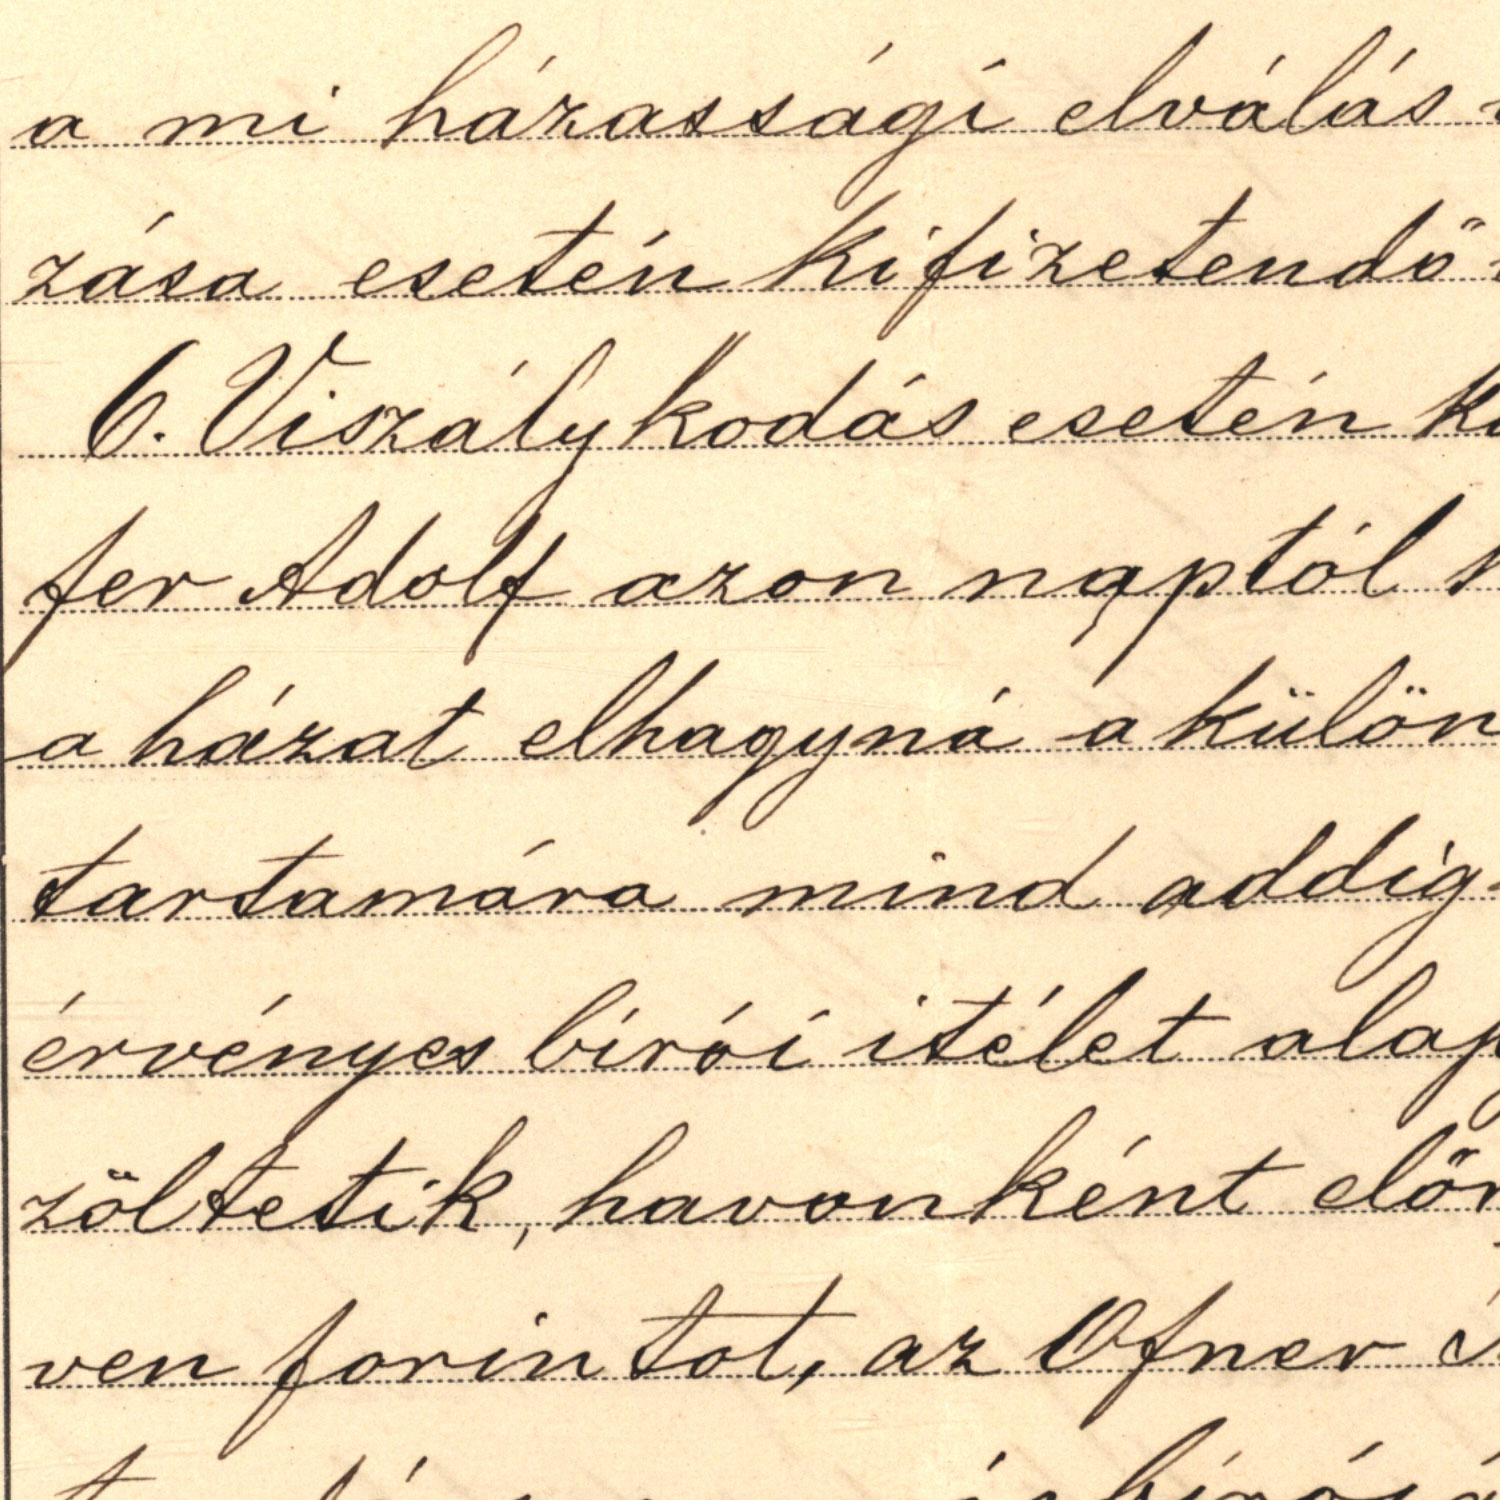 a mi házassági elválás
zása esetén kifizetendő
6. Viszálykodás esetén
fer Adolf azon naptól
a házat elhagyná a külön
tartamára mind addig
érvényes birói itélet alap
zöltetik, havonként előr
ven forintot, az Ofner